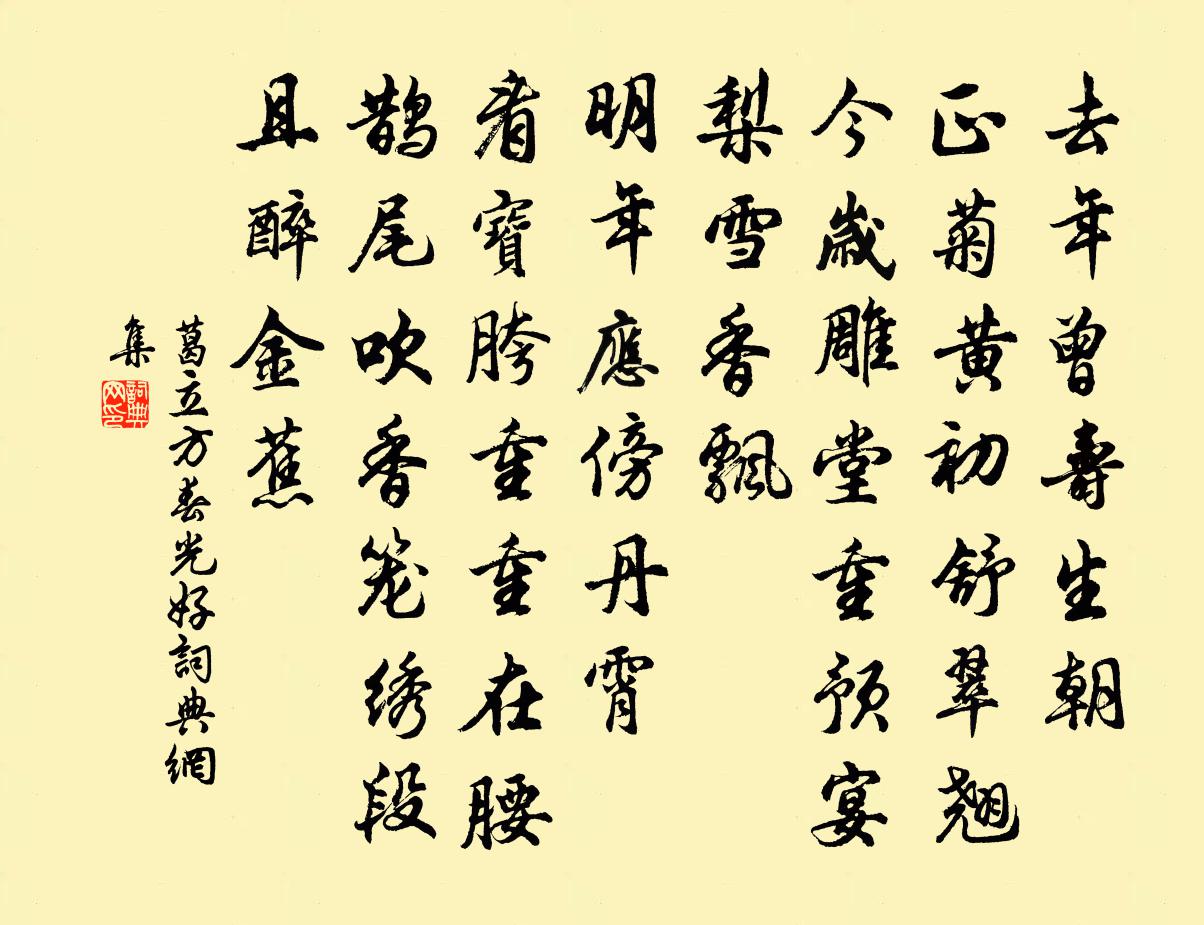 去年曾壽生朝
正菊黄初舒翠翹
今歲雕堂重預宴
梨雪香飄
明年應傍丹霄
看寶胯重重在腰
鵲尾吹香笼绣段
且醉金蕉
葛立方春光好詞典網
集
詞典
网印